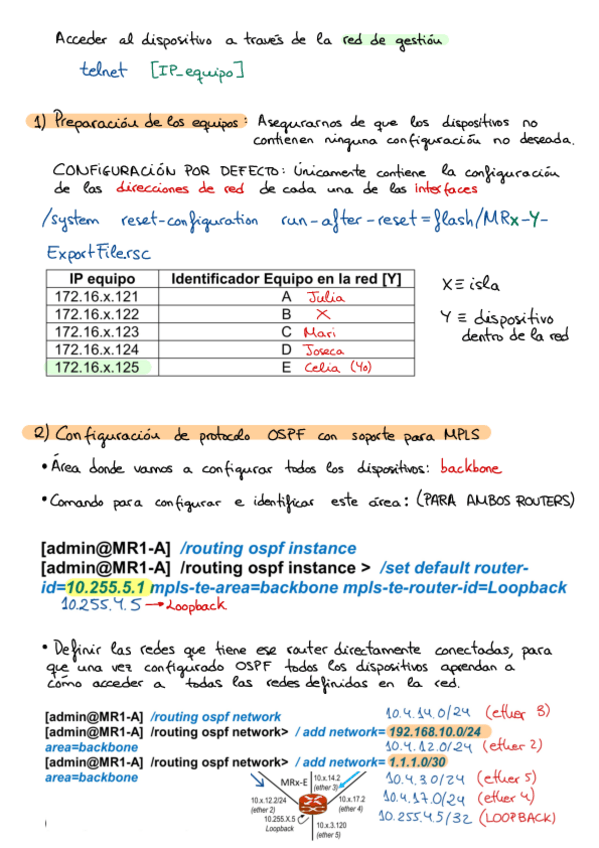 Acceder al dispositivo a través de la red de gestión
telnet [IP_equipo]
1) Preparación de los equipos: Asegurarnos de que los dispositivos no
contienen ninguna configuración no deseada.
CONFIGURACIÓN POR DEFECTO: Únicamente contiene la configuración
de las direcciones de red de cada una de las interfaces
/system reset-configuration run-after-reset=flash/MRx-Y-
ExportFile.rsc
IP equipo Identificador Equipo en la red [Y]
172.16.x.121 A Julia
172.16.x.122 B X
172.16.x.123 C Mari
172.16.x.124 D Joseca
172.16.x.125 E Celia (Yo)
X ≡ isla
Y ≡ dispositivo
dentro de la red
2) Configuración de protocolo OSPF con soporte para MPLS
• Área donde vamos a configurar todos los dispositivos: backbone
• Comando para configurar e identificar este área: (PARA AMBOS ROUTERS)
[admin@MR1-A] /routing ospf instance
[admin@MR1-A] /routing ospf instance > /set default router-
id=10.255.5.1 mpls-te-area=backbone mpls-te-router-id=Loopback
10.255.4.5 → Loopback
• Definir las redes que tiene ese router directamente conectadas, para
que una vez configurado OSPF todos los dispositivos aprendan a
cómo acceder a todas las redes definidas en la red.
[admin@MR1-A] /routing ospf network
[admin@MR1-A] /routing ospf network> / add network= 192.168.10.0/24
area=backbone
[admin@MR1-A] /routing ospf network> / add network= 1.1.1.0/30
area=backbone
10.4.14.0/24 (ether 3)
10.4.12.0/24 (ether 2)
10.4.3.0/24 (ether 5)
10.4.17.0/24 (ether 4)
10.255.4.5/32 (LOOPBACK)
MRx-E
10.x.14.2
(ether 3)
10.x.12.2/24
(ether 2)
10.x.17.2
(ether 4)
10.255.X.5
Loopback
10.x.3.120
(ether 5)